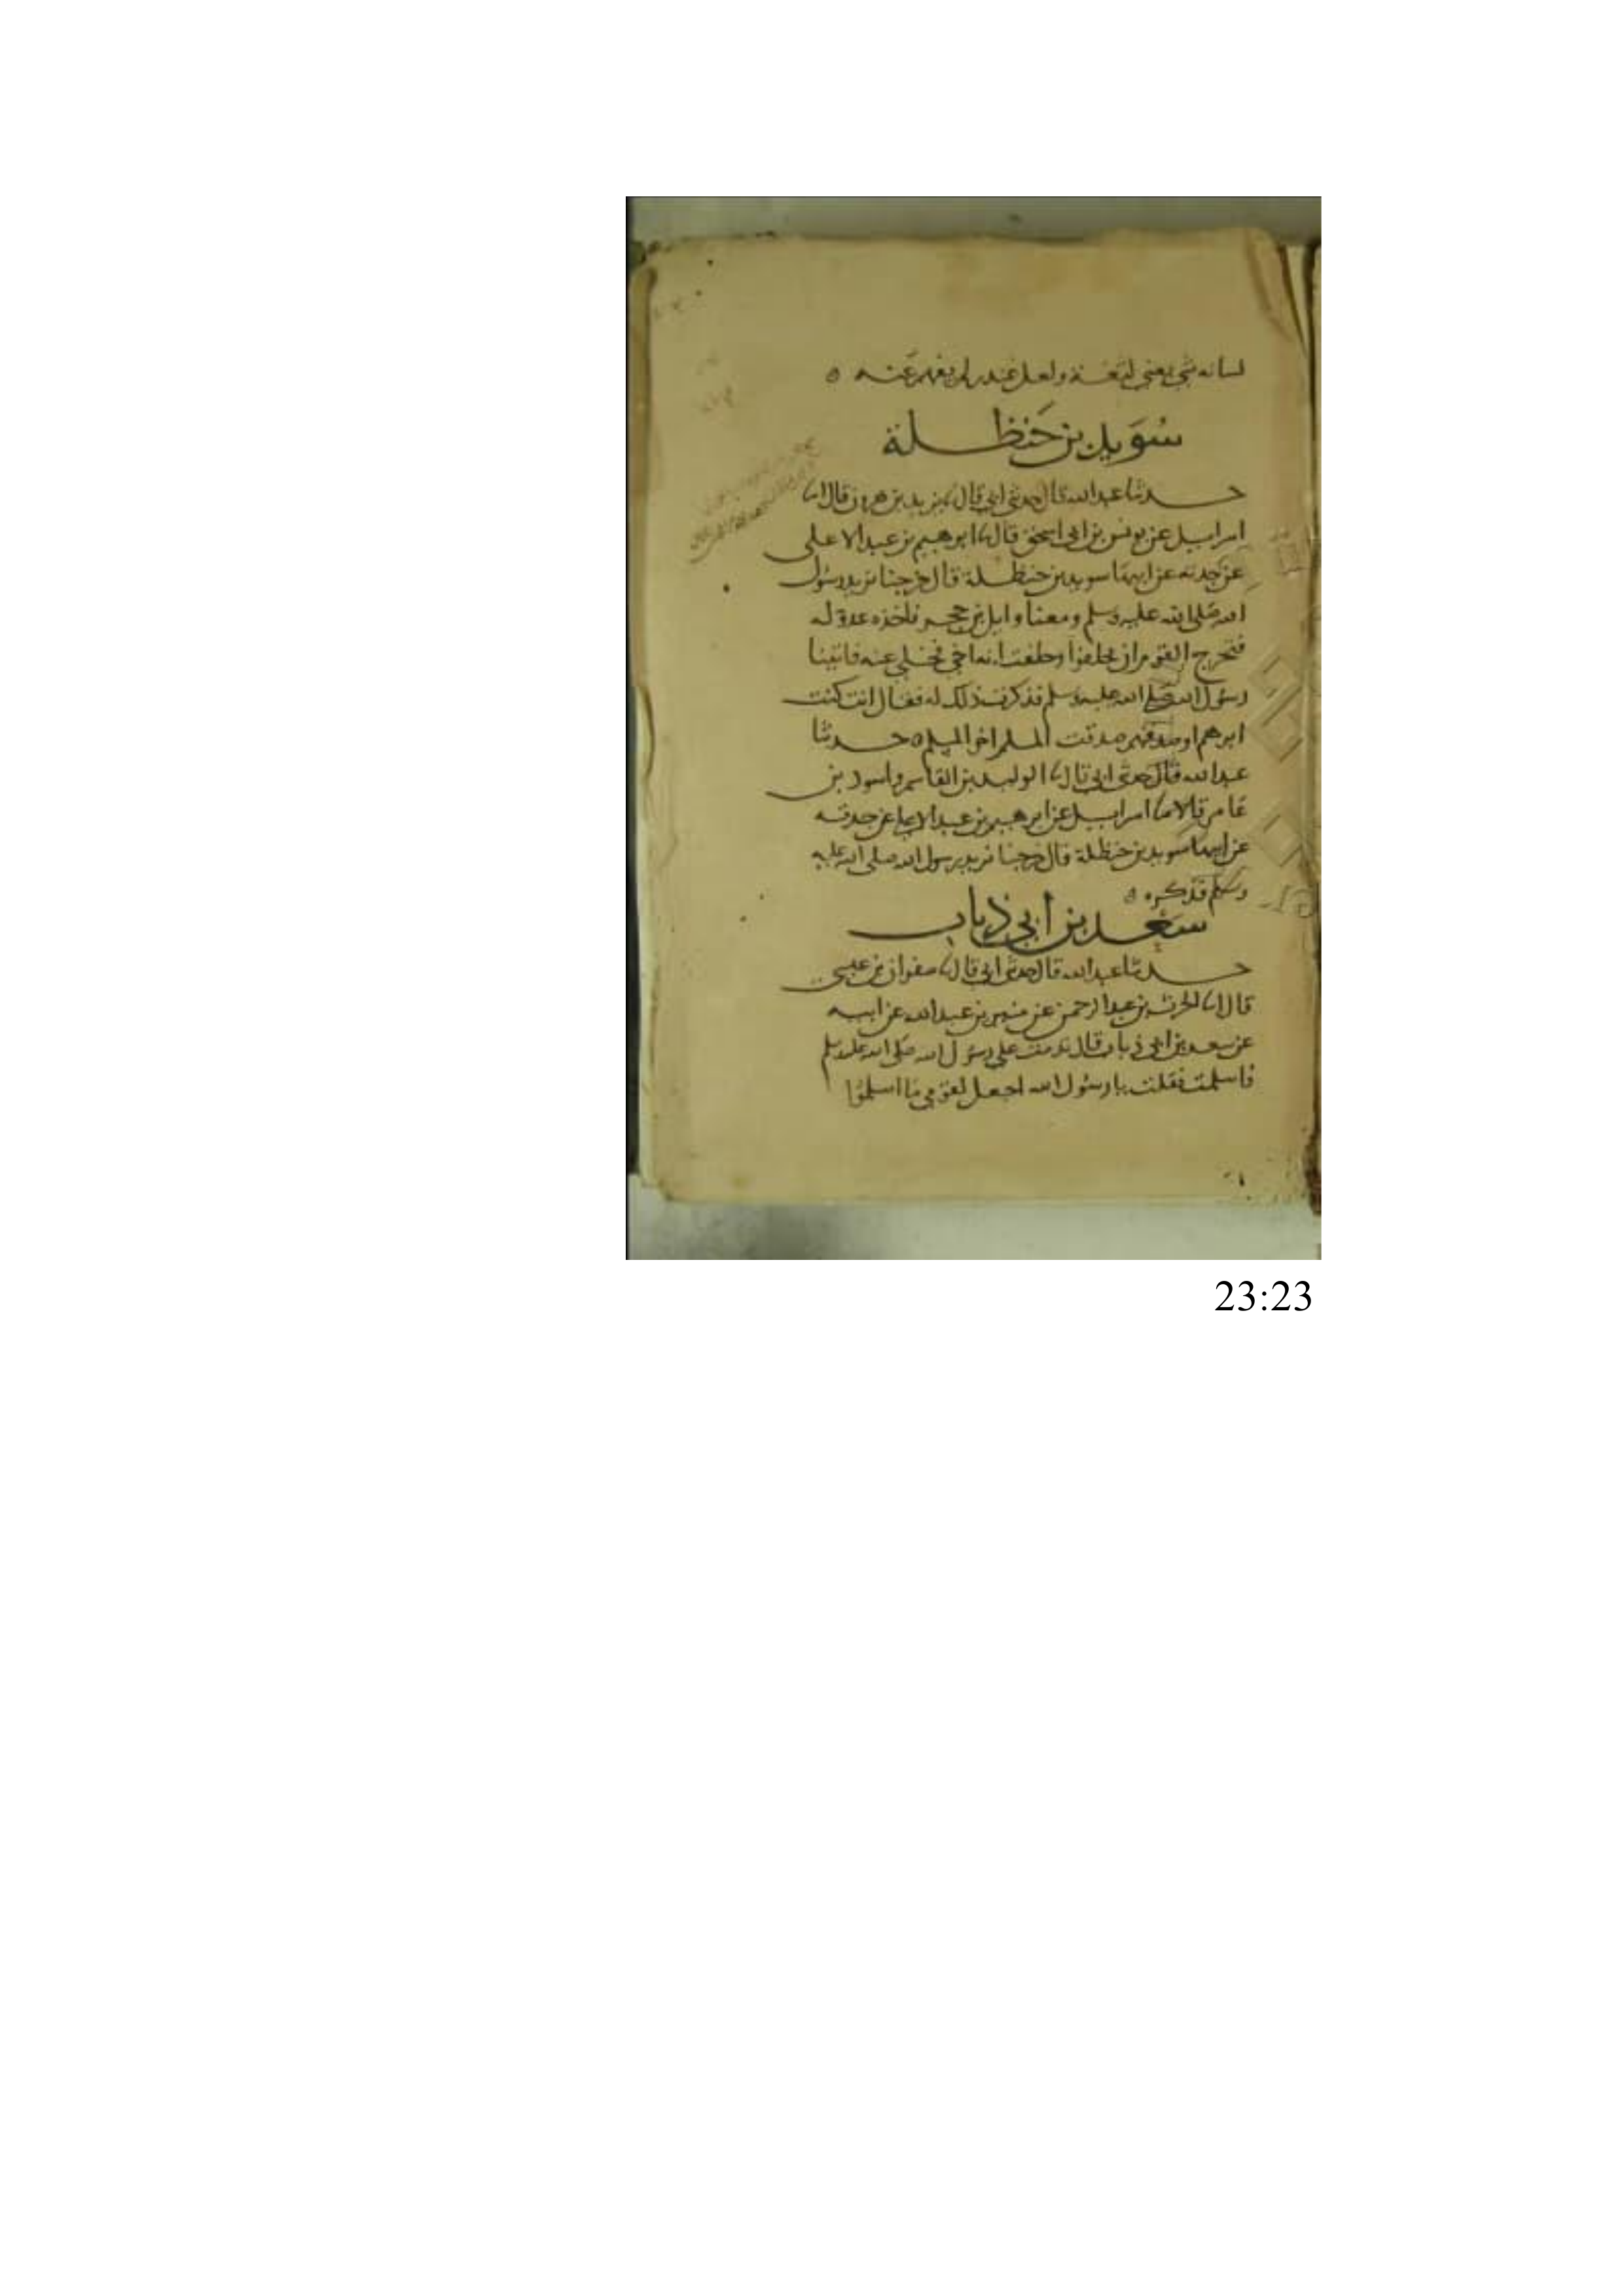 لسانه شي يعني لثغة ولعل غندر لم يفهم عنه ٥
سُوَيد بن حَنظلة
حدثنا عبد الله قال حدثني ابي قال ثنا يزيد بن هرون قال انا
اسراييل عن يونس بن ابي اسحق قال ثنا ابرهيم بن عبد الاعلى
عن جدته عن ابيها سويد بن حنظلة قال خرجنا نريد رسول
الله صلى الله عليه وسلم ومعنا وايل بن حجر فاخذه عدو له
فتحرج القوم ان يحلفوا وحلفت انه اخي فخلي عنه فاتينا
رسول الله صلى الله عليه وسلم فذكرت ذلك له فقال انت كنت
ابرهم واصدقهم صدقت المسلم اخو المسلم ٥ حدثنا
عبد الله قال حدثني ابي قال ثنا الوليد بن القاسم واسود بن
عامر قالا ثنا اسراييل عن ابرهيم بن عبد الاعلى عن جدته
عن ابيها سويد بن حنظلة قال خرجنا نريد رسول الله صلى الله عليه
وسلم فذكره ٥
سَعد بن ابي ذباب
حدثنا عبد الله قال حدثني ابي قال ثنا صفوان بن عيسى
قال انا الحرث بن عبد الرحمن عن منير بن عبد الله عن ابيه
عن سعد بن ابي ذباب قال قدمت على رسول الله صلى الله عليه وسلم
فاسلمت فقلت يا رسول الله اجعل لقومي ما اسلموا
23:23